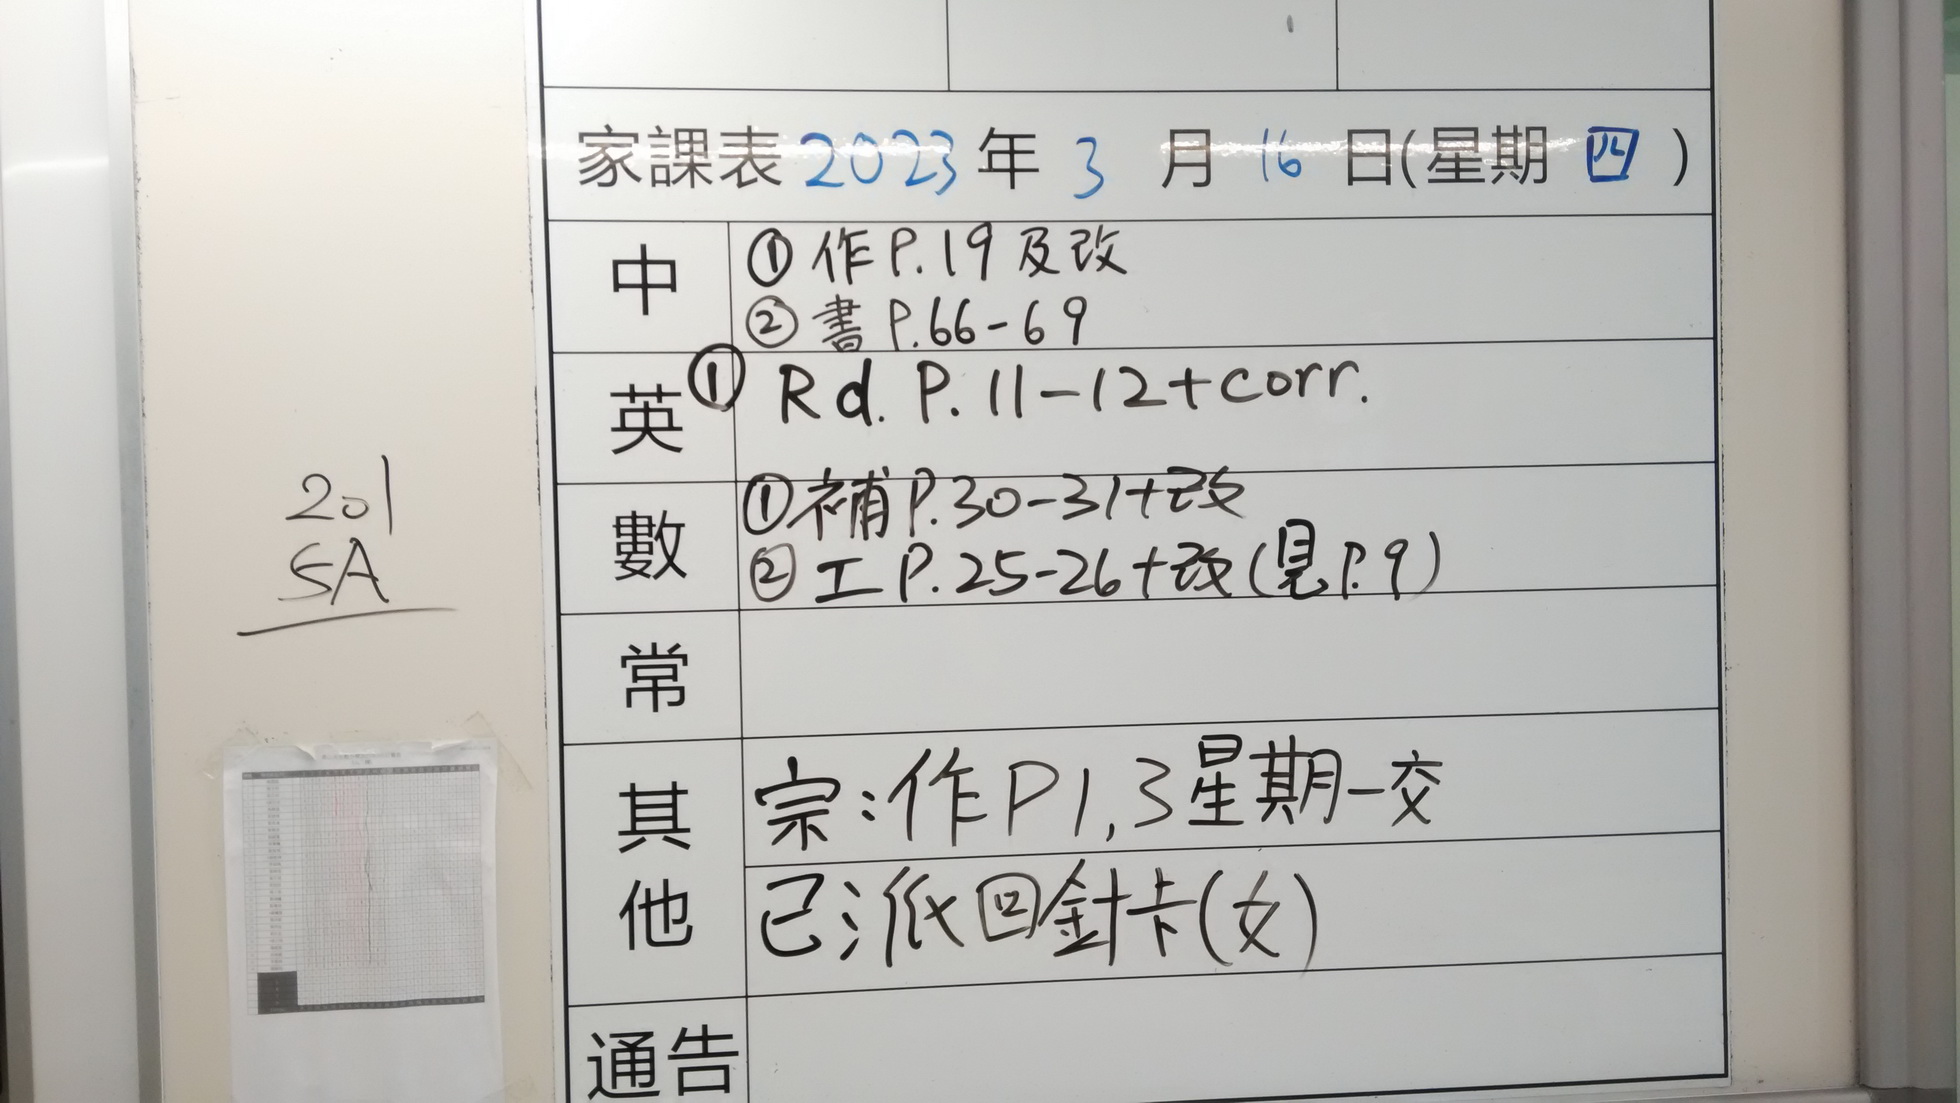 家課表 2023 年 3 月 16 日(星期 四 )
中
① 作 P.19 及改
② 書 P.66-69
英
① Rd. P. 11-12+corr.
數
① 補 P.30-31+改
② 工 P.25-26+改(見P.9)
常
其他
宗:作P1,3星期一交
已派回針卡(女)
通告
201
5A